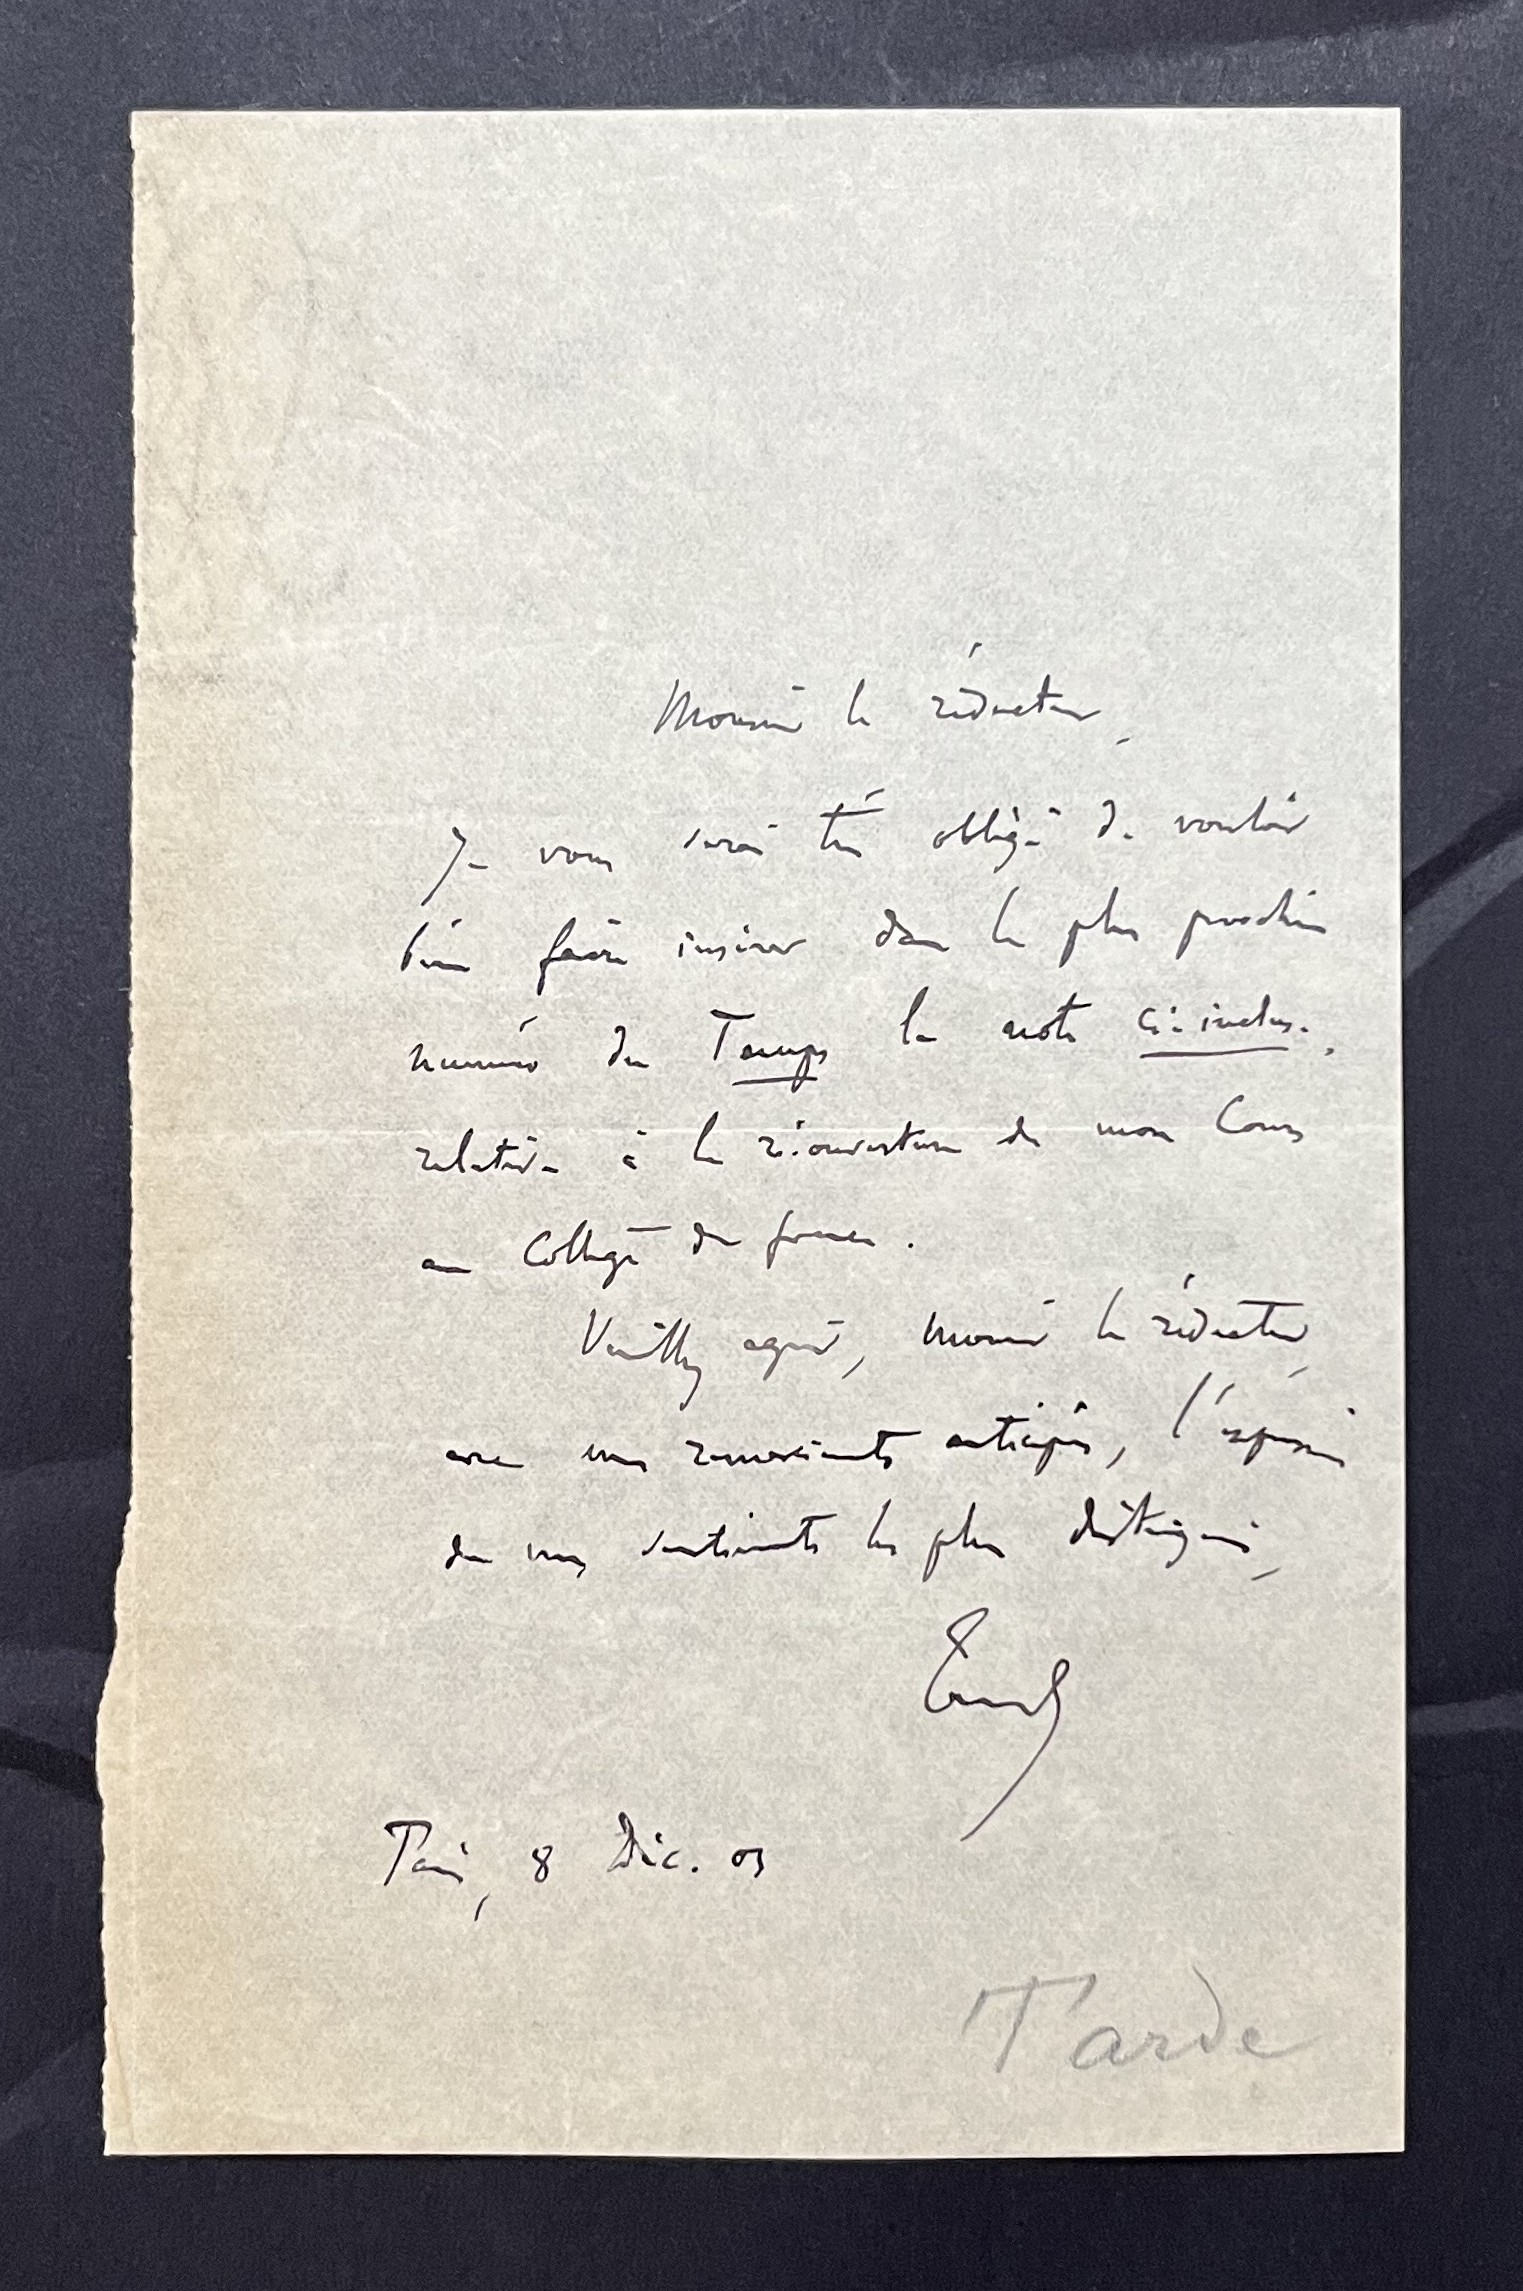 Monsieur le rédacteur,
Je vous serai très obligé de vouloir
bien faire insérer dans le plus prochain
numéro du Temps la note ci-incluse,
relative à la réouverture de mon Cours
au Collège de france.
Veuillez agréer, Monsieur le rédacteur,
avec mes remerciements anticipés, l'expression
de mes sentiments les plus distingués,
Tarde
Paris, 8 Déc. 03
Tarde